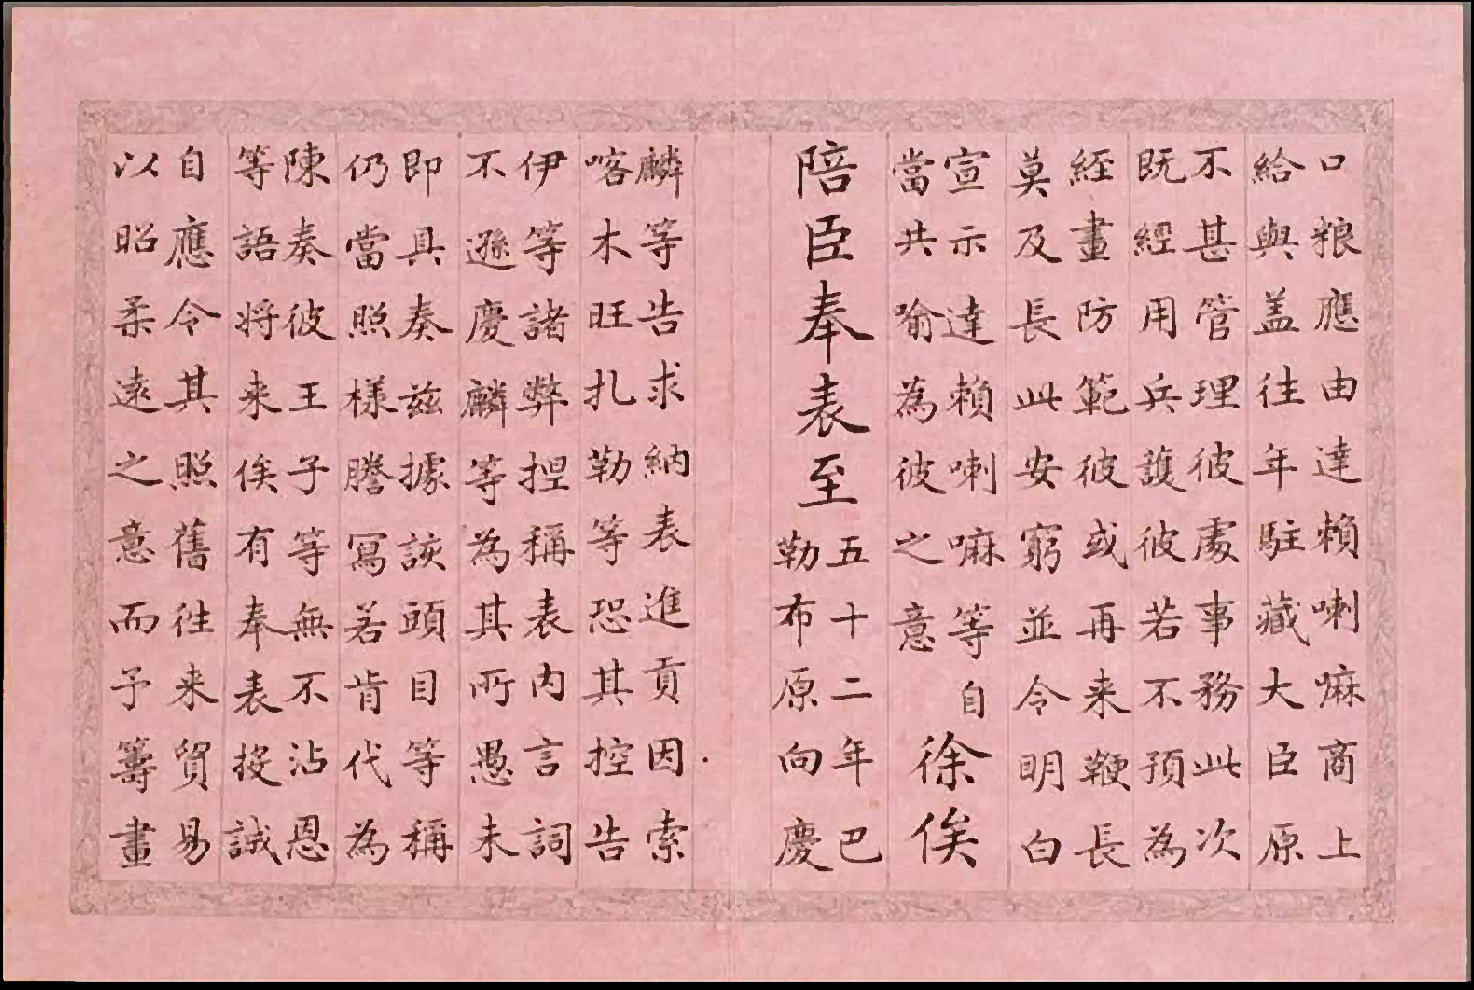 口粮應由達賴喇嘛商上
給與盖往年駐藏大臣原
不甚管理彼處事務此次
既經用兵護彼若不預為
経畫防範彼或再来鞭長
莫及長此安窮並令明白
宣示達賴喇嘛等自
當共喻為彼之意
徐俟
陪臣奉表至
五十二年巴
勒布原向慶
麟等告求納表進貢因索
喀木旺扎勒等恐其控告
伊等諸弊捏稱表内言詞
不遜慶麟等為其所愚未
即具奏兹據該頭目等稱
仍當照樣謄寫若肯代為
陳奏彼王子等無不沾恩
等語将来俟有奉表投誠
自應令其照舊徃来貿易
以昭柔逺之意而予籌畫